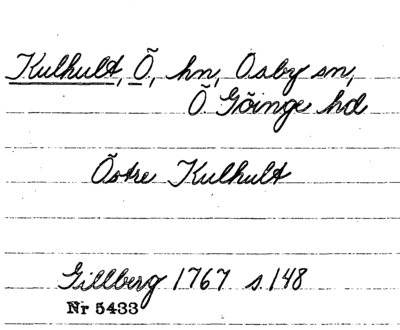 Kulhult, Ö, hn, Osby sn,
Ö Göinge hd
Östre Kulhult
Gillberg 1767 s. 148
Nr 5433